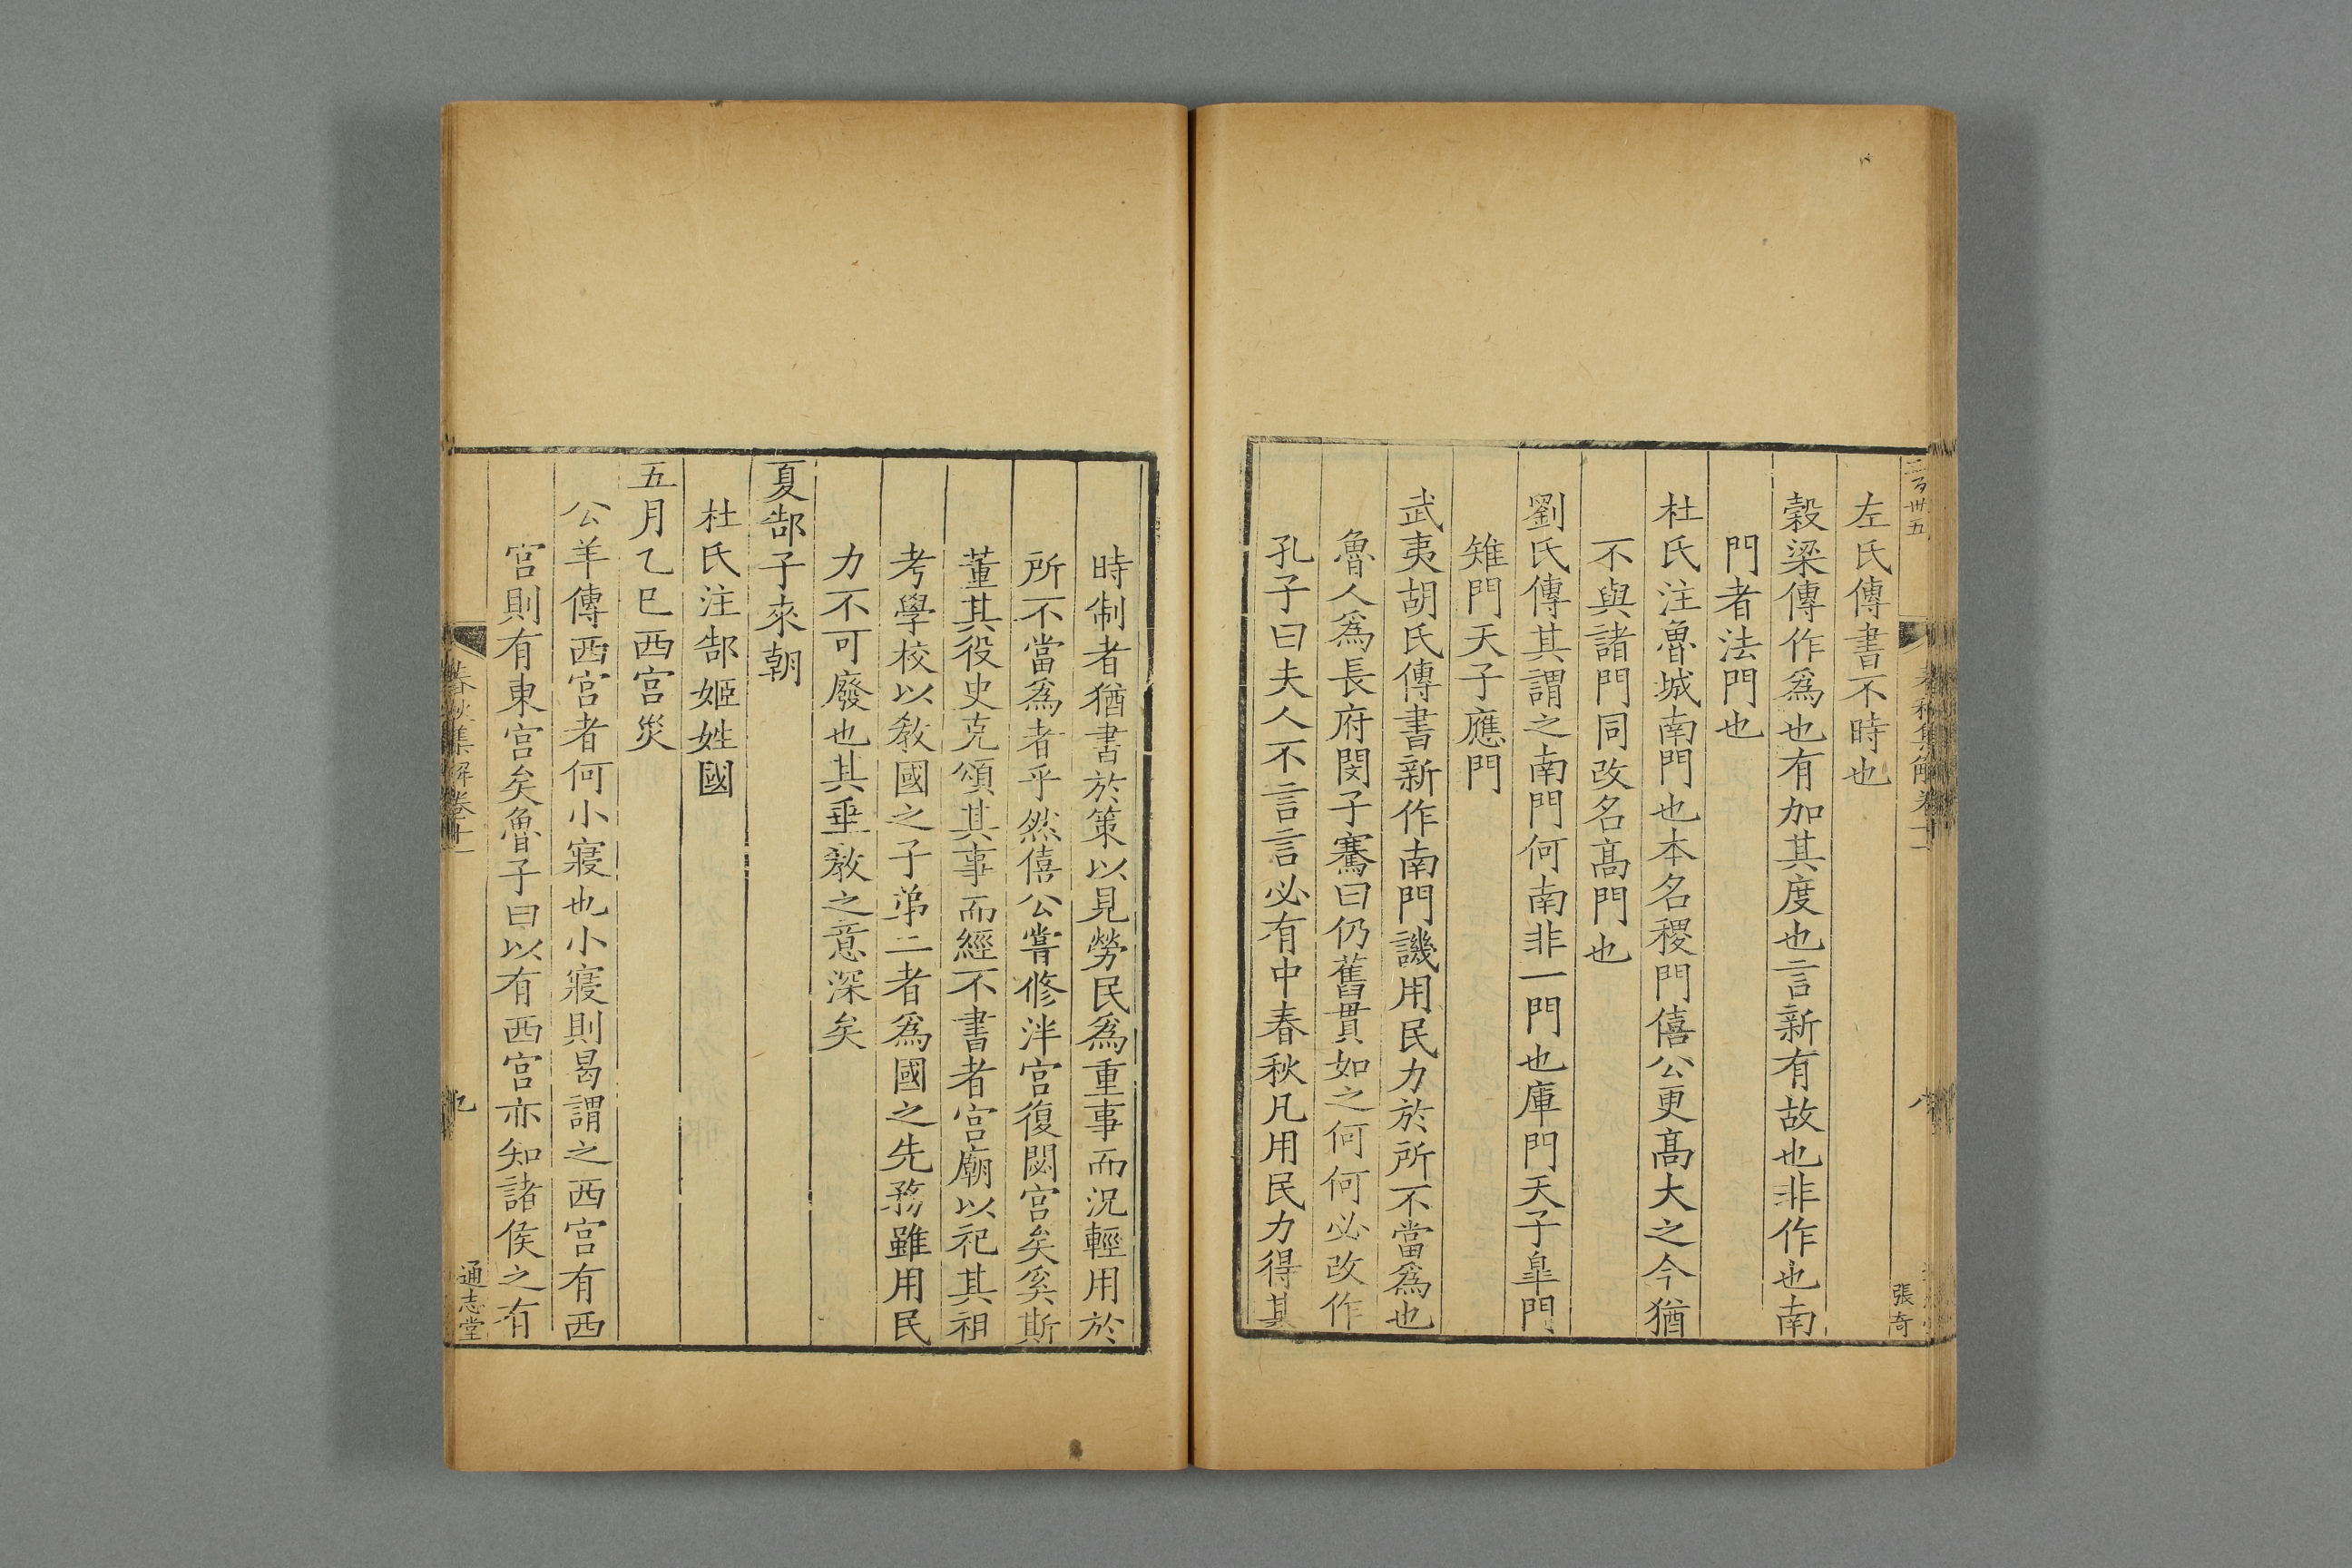 左氏傳書不時也
穀梁傳作爲也有加其度也言新有故也非作也南
門者法門也
杜氏注魯城南門也本名稷門僖公更髙大之今猶
不與諸門同改名髙門也
劉氏傳其謂之南門何南非一門也庫門天子皐門
雉門天子應門
武夷胡氏傳書新作南門譏用民力於所不當爲也
魯人爲長府閔子騫曰仍舊貫如之何何必改作
孔子曰夫人不言言必有中春秋凡用民力得其
張奇
時制者猶書於策以見勞民爲重事而況輕用於
所不當爲者乎然僖公嘗修泮宫復閟宫矣奚斯
董其役史克頌其事而經不書者宫廟以祀其祖
考學校以敎國之子弟二者爲國之先務雖用民
力不可廢也其垂敎之意深矣
夏郜子來朝
杜氏注郜姬姓國
五月乙巳西宫災
公羊傳西宫者何小寢也小寢則曷謂之西宫有西
宫則有東宫矣魯子曰以有西宫亦知諸侯之有
春秋集解卷十一
九
通志堂